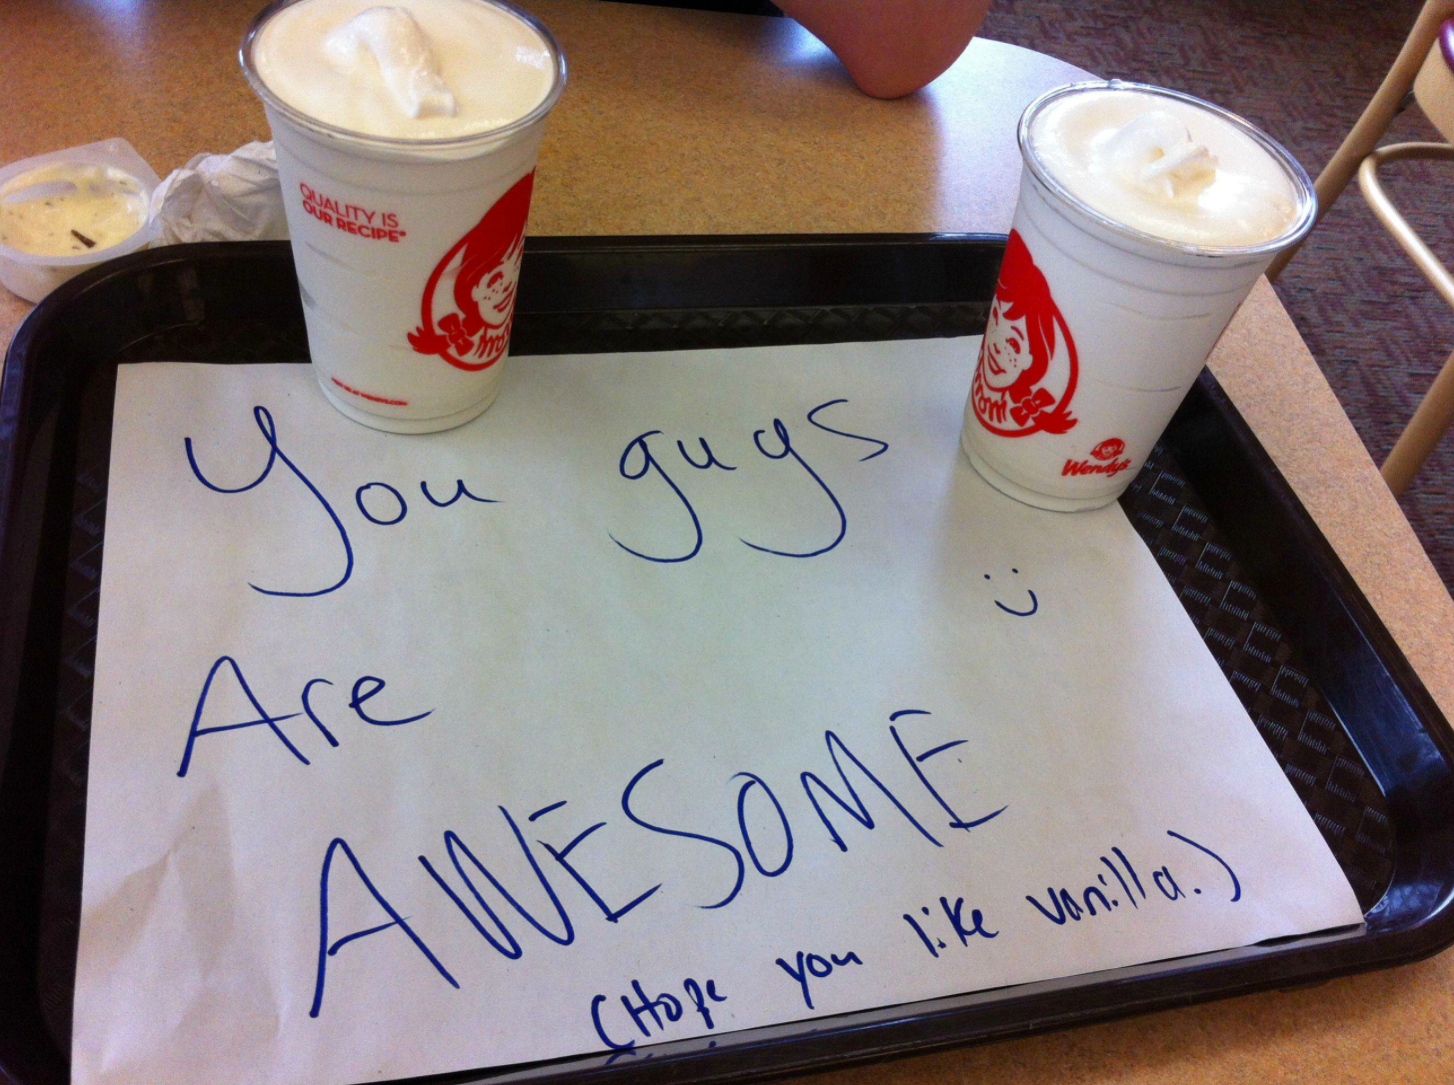 QUALITY IS
OUR RECIPE®
Wendy's
You guys
:)
Are
AWESOME
(Hope you like vanilla.)